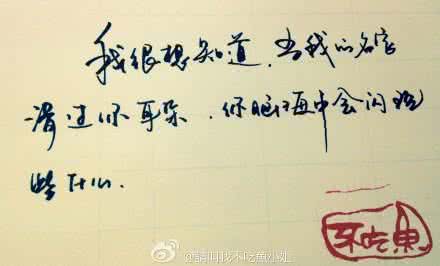 我很想知道，当我的名字
滑过你耳朵，你脑海中会闪现
些什么.
不吃鱼
@請叫我不吃魚小姐